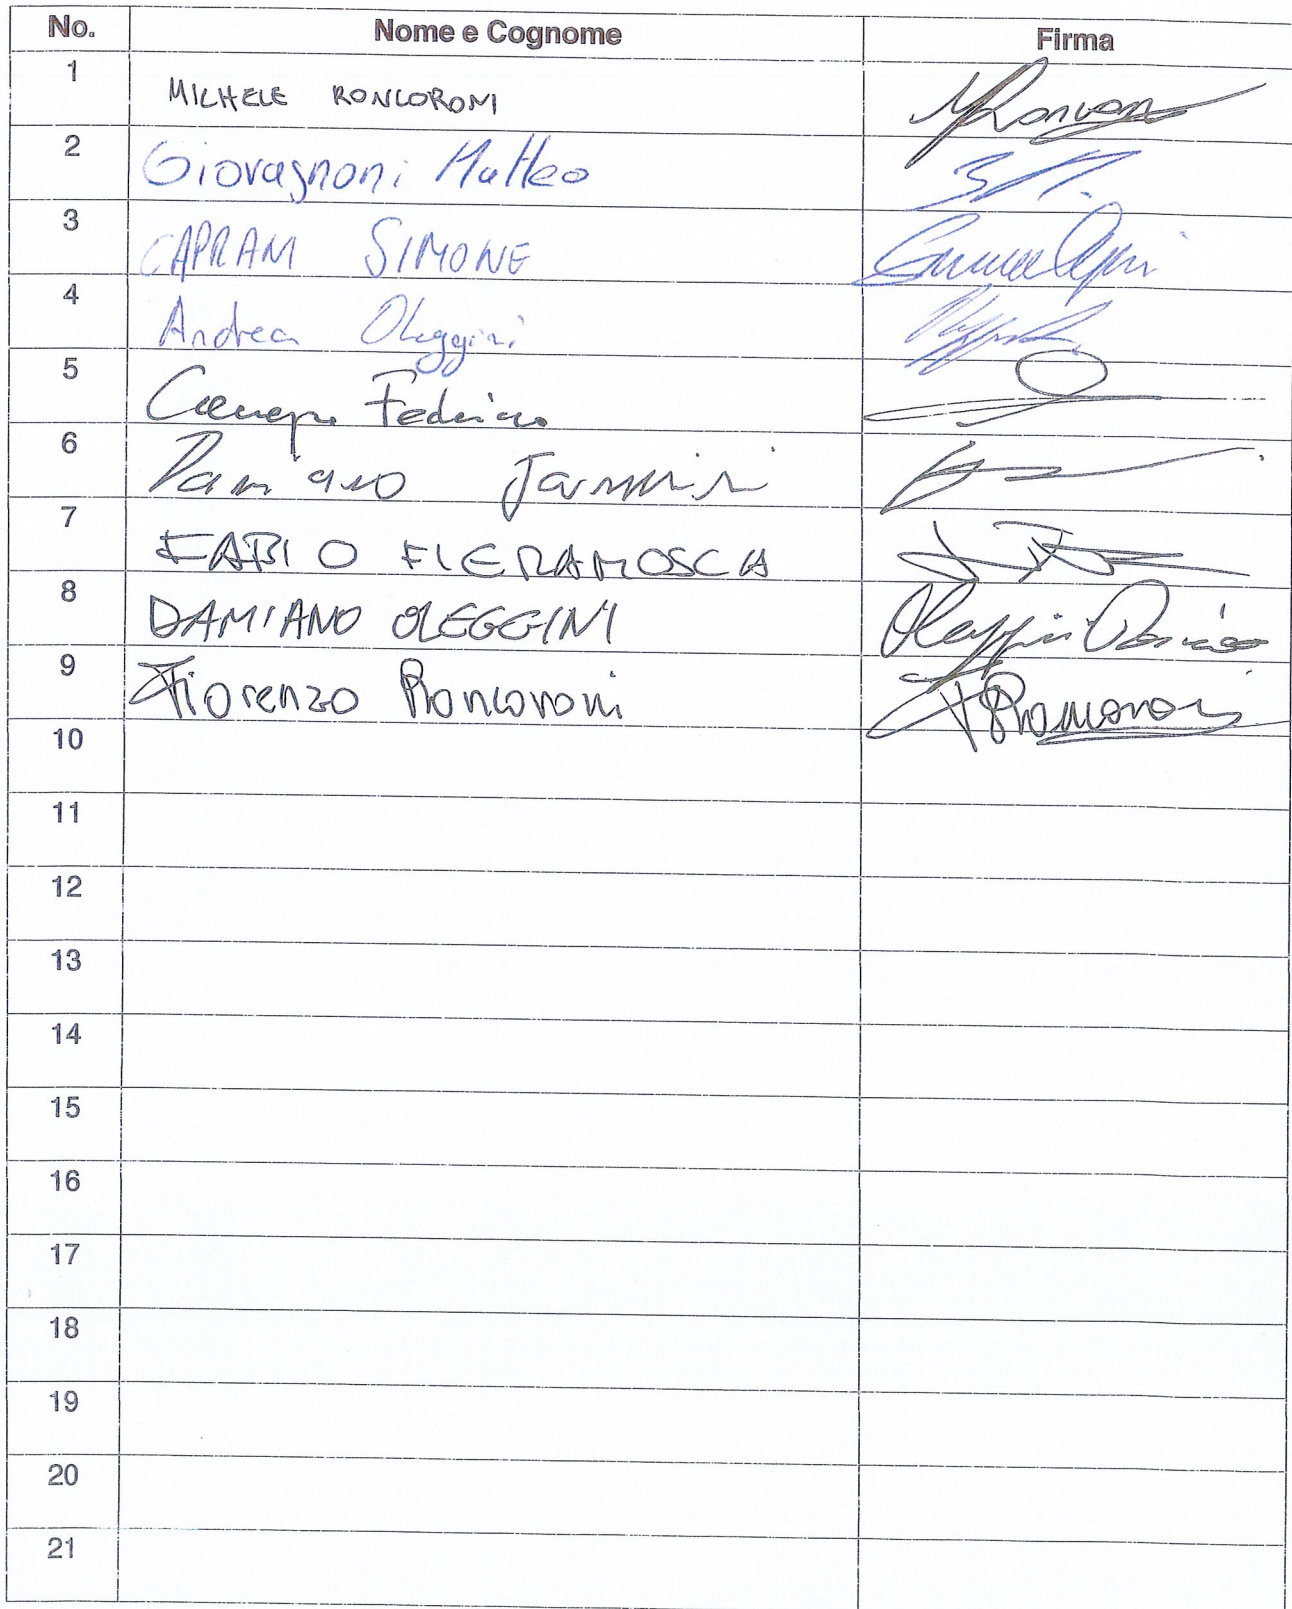 No. Nome e Cognome Firma
1 MICHELE RONCORONI MRoncoroni
2 Giovagnoni Matteo
3 CAPRANI SIMONE
4 Andrea Oleggini
5 Federico
6 Damiano
7 FABIO FIERAMOSCA
8 DAMIANO OLEGGINI Oleggini Damiano
9 Fiorenzo Roncoroni FRoncoroni
10
11
12
13
14
15
16
17
18
19
20
21